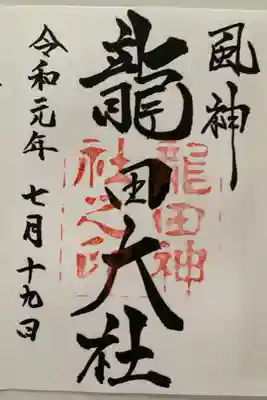 風神
龍田大社
龍田神
社之印
令和元年七月十九日